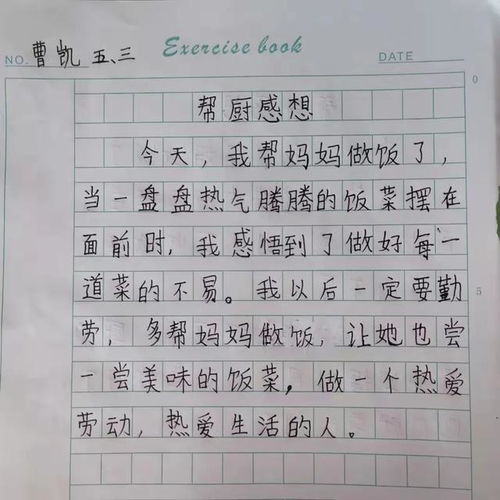 NO. 曹凯 五、三 Exercise book DATE
0
帮厨感想
今天，我帮妈妈做饭了，
当一盘盘热气腾腾的饭菜摆在
面前时，我感悟到了做好每一
道菜的不易。我以后一定要勤
5
劳，多帮妈妈做饭，让她也尝
一尝美味的饭菜，做一个热爱
劳动，热爱生活的人。